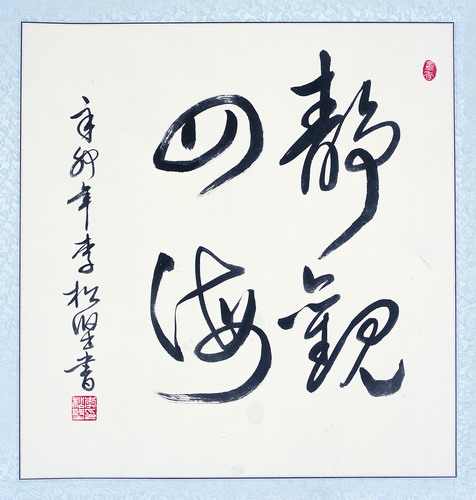 靜觀
四海
辛卯年李松堅書